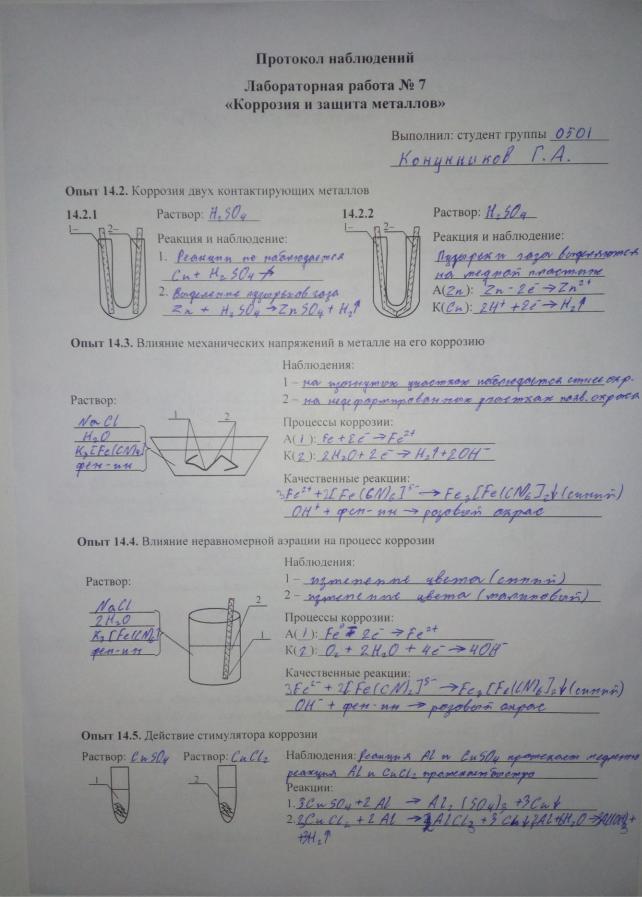 Протокол наблюдений
Лабораторная работа № 7
«Коррозия и защита металлов»
Выполнил: студент группы 0501
Конунников Г.А.
Опыт 14.2. Коррозия двух контактирующих металлов
14.2.1 Раствор: H₂SO₄ 14.2.2 Раствор: H₂SO₄
1– 2– 1– 2–
Реакция и наблюдение: Реакция и наблюдение:
1. Реакции не наблюдается
Cu + H₂SO₄ ↛
2. Выделение пузырьков газа
Zn + H₂SO₄ → ZnSO₄ + H₂↑
Пузырьки газа выделяются
на медной пластине
А(Zn): Zn - 2e̅ → Zn²⁺
К(Cu): 2H⁺ + 2e̅ → H₂↑
Опыт 14.3. Влияние механических напряжений в металле на его коррозию
Раствор:
NaCl
H₂O
K₃[Fe(CN)₆]
фен-ин
1 2
Наблюдения:
1 – на изогнутых участках наблюдается синее окр.
2 – на недеформированных участках появ. окраса
Процессы коррозии:
А(1): Fe + 2e̅ → Fe²⁺
К(2): 2H₂O + 2e̅ → H₂↑ + 2OH⁻
Качественные реакции:
3Fe²⁺ + 2[Fe(CN)₆]³⁻ → Fe₃[Fe(CN)₆]₂↓ (синий)
OH⁻ + фен-ин → розовый окрас
Опыт 14.4. Влияние неравномерной аэрации на процесс коррозии
Раствор:
NaCl
2H₂O
K₃[Fe(CN)₆]
фен-ин
2
1
Наблюдения:
1 – изменение цвета (синий)
2 – изменение цвета (малиновый)
Процессы коррозии:
А(1): Fe⁰ - 2e̅ → Fe²⁺
К(2): O₂ + 2H₂O + 4e̅ → 4OH⁻
Качественные реакции:
3Fe²⁺ + 2[Fe(CN)₆]³⁻ → Fe₃[Fe(CN)₆]₂↓ (синий)
OH⁻ + фен-ин → розовый окрас
Опыт 14.5. Действие стимулятора коррозии
Раствор: CuSO₄ Раствор: CuCl₂
1 2
Наблюдения: Реакция Al и CuSO₄ протекает медленно
реакция Al и CuCl₂ протекает быстро
Реакции:
1. 3CuSO₄ + 2Al → Al₂(SO₄)₃ + 3Cu↓
2. 3CuCl₂ + 2Al → 2AlCl₃ + 3Cu↓ 2Al + 6H₂O → 2Al(OH)₃ +
+3H₂↑